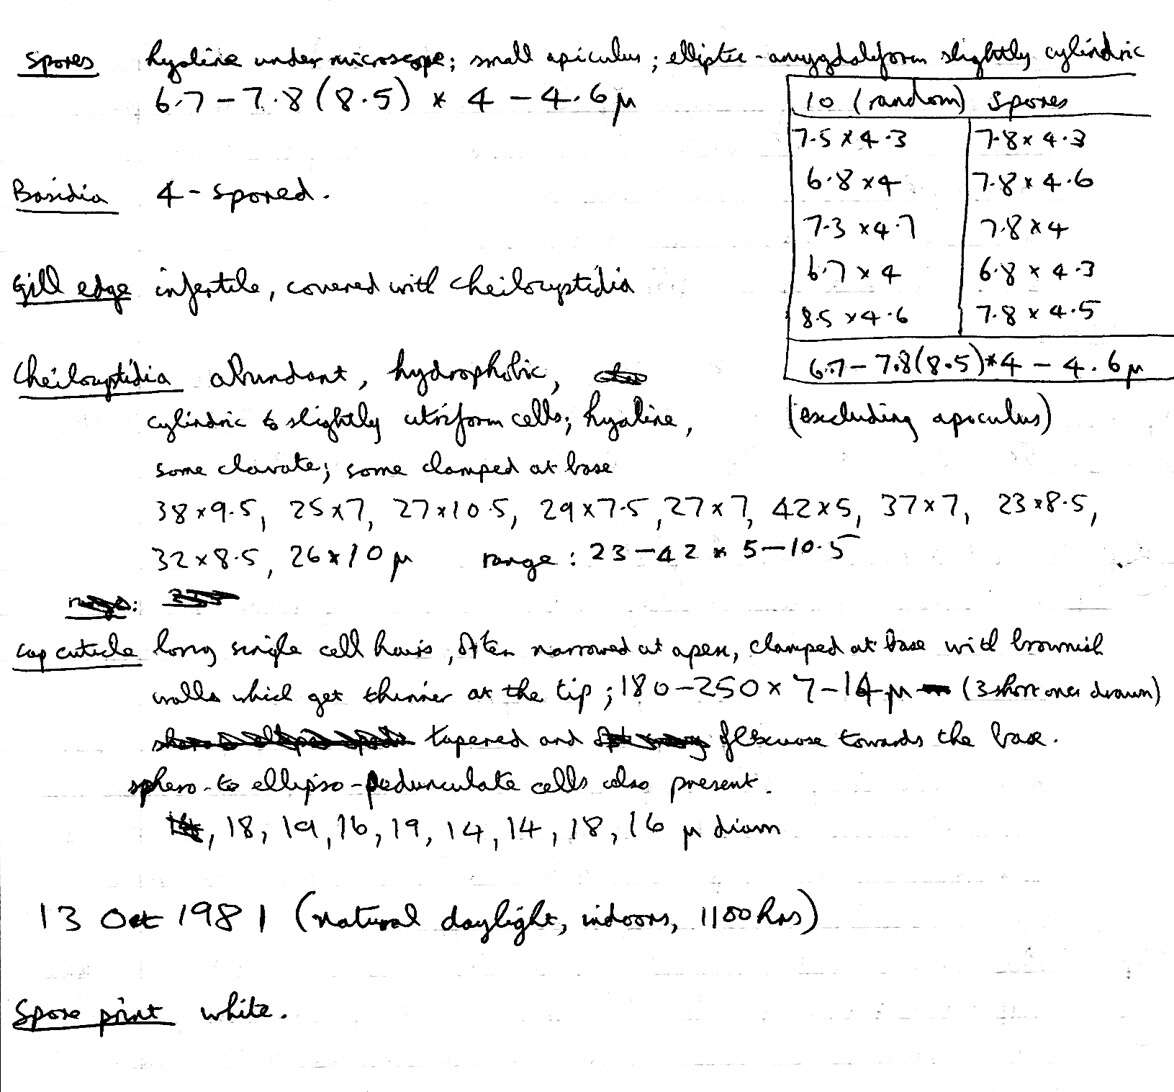 Spores hyaline under microscope; small apiculus; elliptic-amygdaliform slightly cylindric
6.7-7.8(8.5) × 4-4.6 μ
10 (random) Spores
7.5 × 4.3 7.8 × 4.3
6.8 × 4 7.8 × 4.6
7.3 × 4.7 7.8 × 4
6.7 × 4 6.8 × 4.3
8.5 × 4.6 7.8 × 4.5
6.7-7.8(8.5) × 4-4.6 μ
(excluding apiculus)
Basidia 4-spored.
Gill edge infertile, covered with cheilocystidia
Cheilocystidia abundant, hydrophobic,
cylindric to slightly utriform cells; hyaline,
some clavate; some clamped at base
38×9.5, 25×7, 27×10.5, 29×7.5, 27×7, 42×5, 37×7, 23×8.5,
32×8.5, 26×10 μ range: 23-42 × 5-10.5
Cap cuticle long single cell hairs, often narrowed at apex, clamped at base with brownish
walls which get thinner at the tip; 180-250 × 7-14 μ (3 short ones drawn)
tapered and flexuose towards the base.
sphero- to ellipso-pedunculate cells also present.
, 18, 19, 16, 19, 14, 14, 18, 16 μ diam
13 Oct 1981 (natural daylight, indoors, 1100 hrs)
Spore print white.